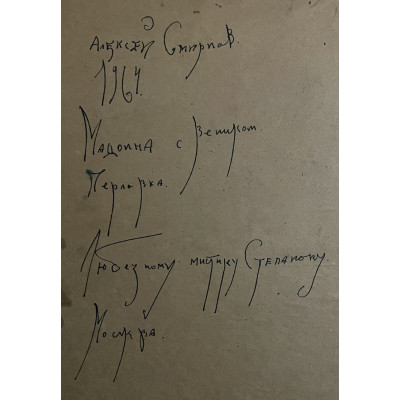 Алексей Смирнов
1964.
Мадонна с Веником.
Перловка.
Любезному митику Степанову.
Москва.